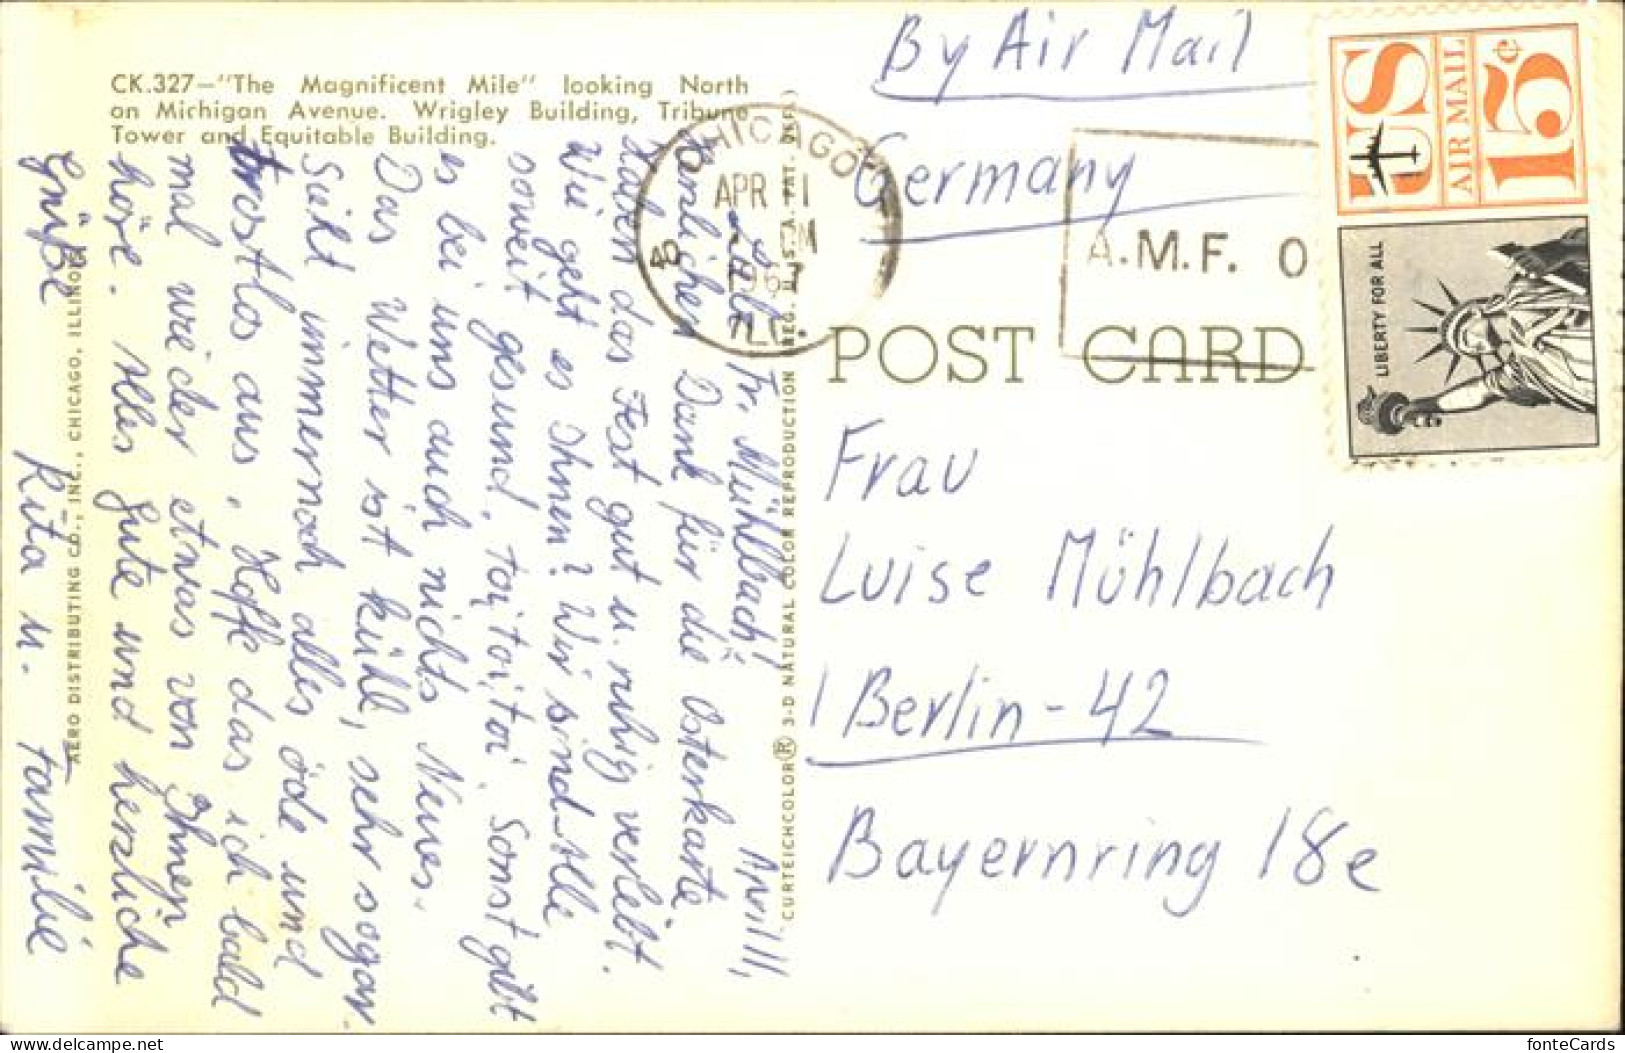 CK.327—"The Magnificent Mile" looking North
on Michigan Avenue. Wrigley Building, Tribune
Tower and Equitable Building.
April 11,
Lb. Fr. Mühlbach!
Herzlichen Dank für die Osterkarte.
Haben das Fest gut u. ruhig verlebt.
Wie geht es Ihnen? Wir sind Alle
soweit gesund, toi, toi, toi. Sonst gibt
es bei uns auch nichts Neues.
Das Wetter ist kühl, sehr sogar.
Sieht immernoch alles öde und
trostlos aus. Hoffe das ich bald
mal wieder etwas von Ihnen
höre. Alles Gute und herzliche
Grüße
Rita u. Familie
AERO DISTRIBUTING CO., INC., CHICAGO, ILLINOIS
CURTEICHCOLOR® 3-D NATURAL COLOR REPRODUCTION (REG. U.S.A. PAT. OFF.)
CHICAGO
APR 11
PM
1967
40
ILL.
A.M.F. O
By Air Mail
Germany
US
AIR MAIL
15c
LIBERTY FOR ALL
POST CARD
Frau
Luise Mühlbach
1 Berlin-42
Bayernring 18e
delcampe.net
fonteCards